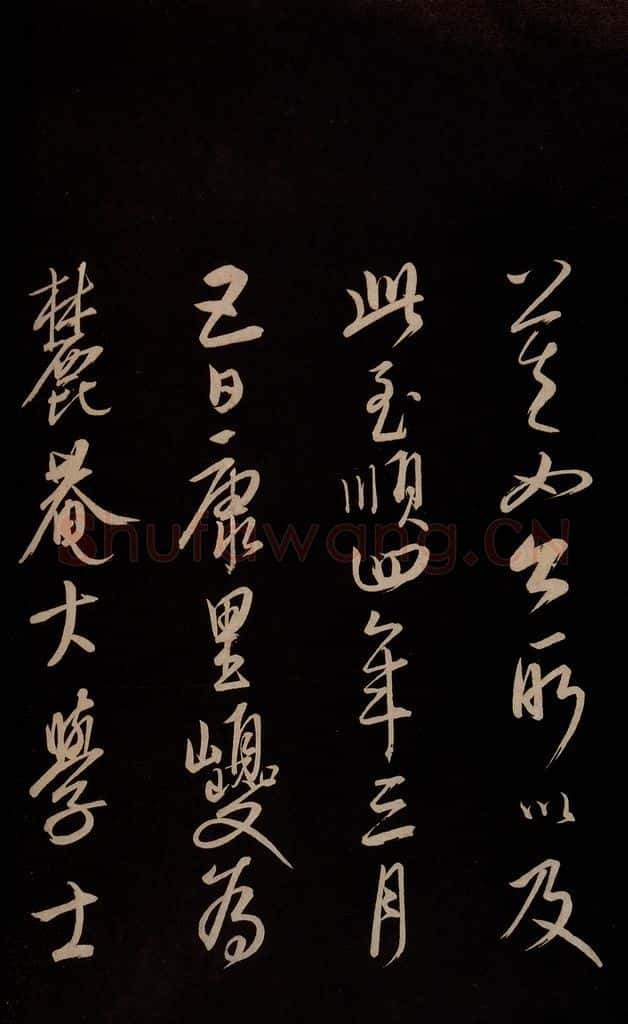 如公所以及
此至順四年三月
五日康里巎為
麓菴大學士
shufawang.CN